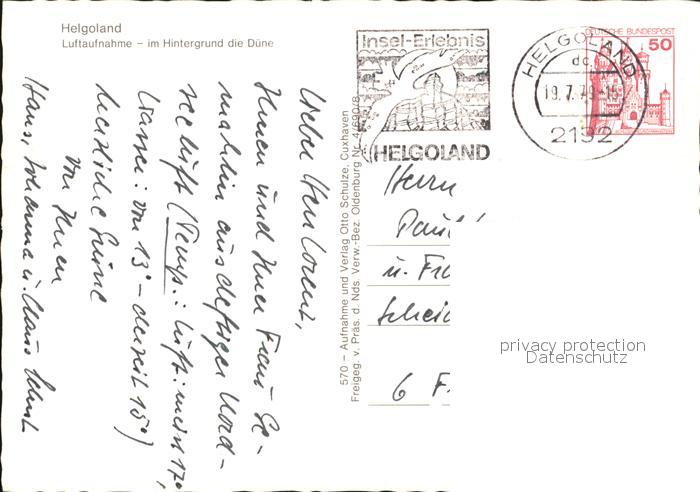 Helgoland
Luftaufnahme – im Hintergrund die Düne
Lieber Herr Lorent,
Ihnen und Ihrer Frau Ge-
mahlin aus deftiger Nord-
seeluft (Temp.: Luft: meist 17°,
Wasser: von 13° – derzeit 15°)
herzliche Grüße
von Ihren
Hans, Johanna u. Claus
570 – Aufnahme und Verlag Otto Schulze, Cuxhaven
Freigeg. v. Präs. d. Nds. Verw.-Bez. Oldenburg Nr. 4/690/8
Insel-Erlebnis
HELGOLAND
HELGOLAND
dc
19.7.79-15
2192
DEUTSCHE BUNDESPOST
50
Herrn
Paul
u. Fr
Scheid
6 F
privacy protection
Datenschutz